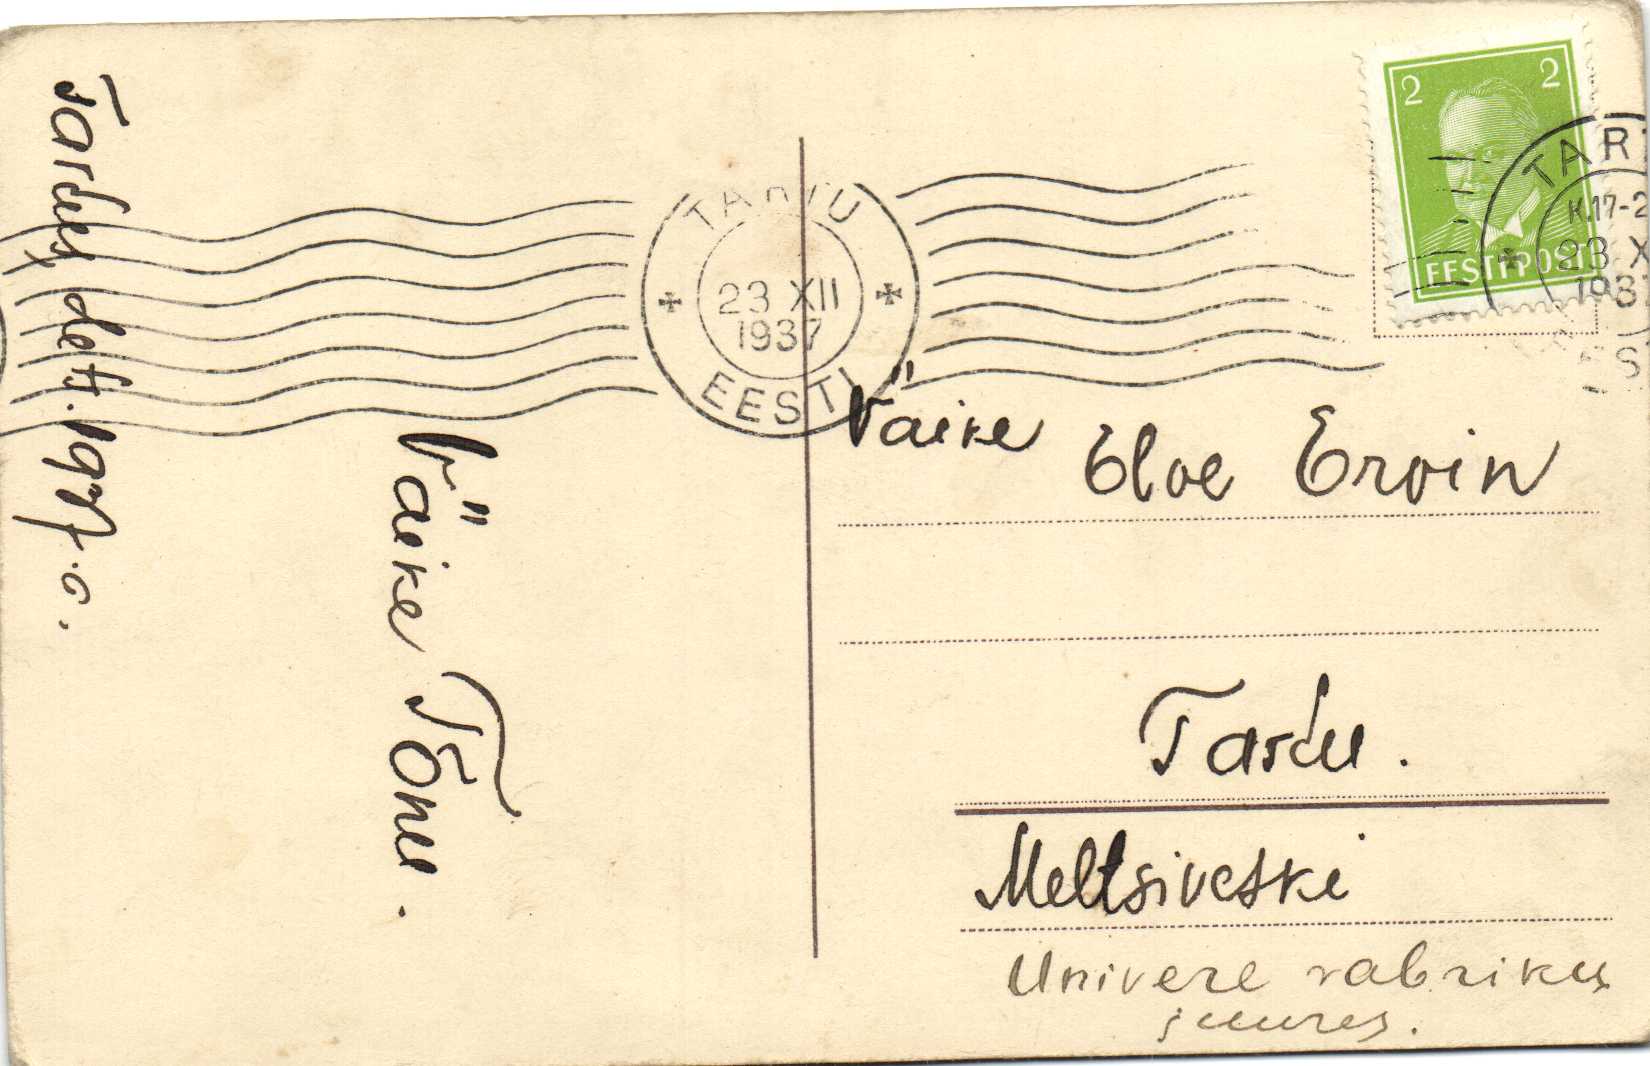 Tartus, dets. 1937. a.
Väike Tõnu.
TARTU
23 XII
1937
EESTI
2 2
EESTI POST
TART
K.17-2
23 X
193
EES
Väike Elve Ervin
Tartu.
Meltsiveski
Univere vabriku
juures.